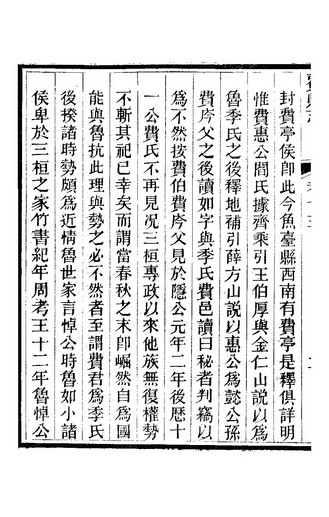 封費亭侯卽此今魚臺縣西南有費亭是釋俱詳明
惟費惠公閻氏據齊乘引王伯厚與金仁山說以爲
魯季氏之後釋地補引薛方山說以惠公爲懿公孫
費庈父之後讀如字與季氏費邑讀曰秘者判竊以
爲不然按費伯費庈父見於隱公元年二年後歷十
一公費氏不再見况三桓專政以來他族無復權勢
不斬其祀已幸矣而謂當春秋之末卽崛然自爲國
能與魯抗此理與勢之必不然者至謂費君爲季氏
後揆諸時勢頗爲近情魯世家言悼公時魯如小諸
侯卑於三桓之家竹書紀年周考王十二年魯悼公